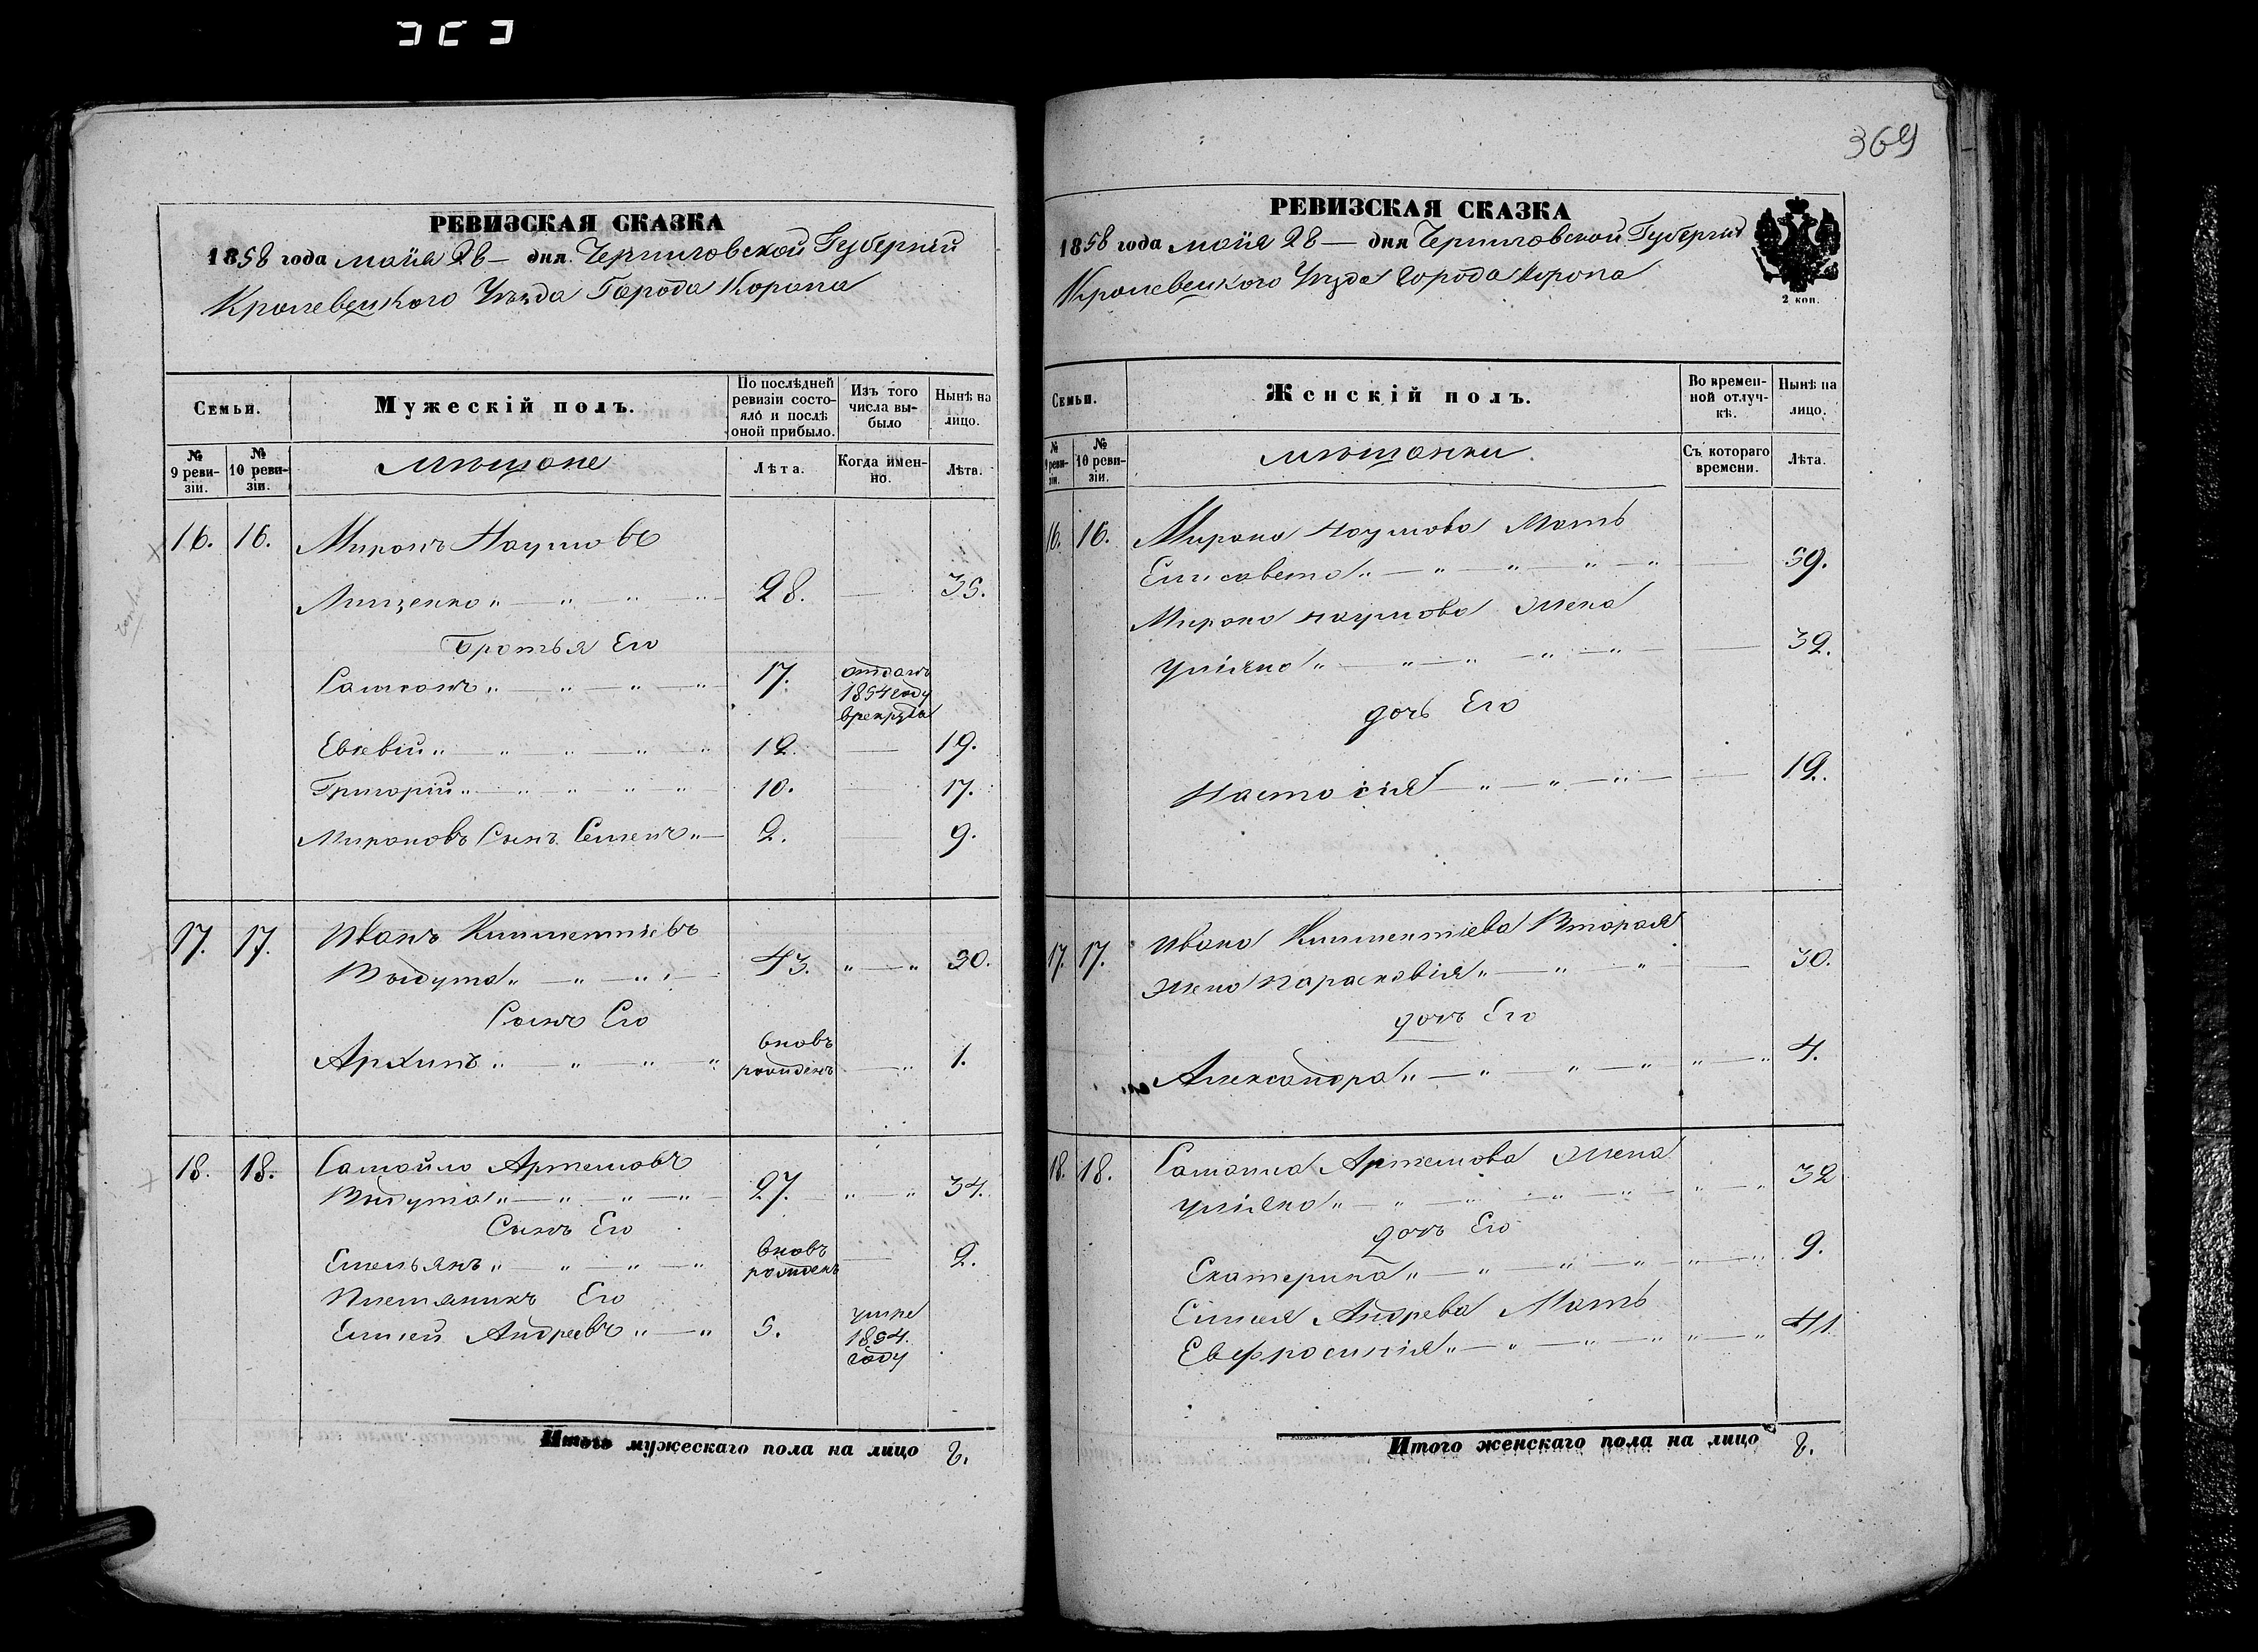 369
РЕВИЗСКАЯ СКАЗКА
1858 года маія 28 — дня Черниговской Губерніи
Кролевецкого Уѣзда Города Коропа
Семьи.
Мужескій полъ.
По послѣдней ревизіи состояло и послѣ оной прибыло.
Изъ того числа выбыло
Нынѣ на лицо.
№ 9 ревизіи.
№ 10 ревизіи.
мѣщане
Лѣта.
Когда именно.
Лѣта.
16. 16. Миронъ Наумовъ
Мищенко „ — „ — „ — „ 28. — 35.
Братья Его
Самсонъ „ — „ — „ — „ 17. отданъ 1854 году врекруты
Евсевій „ — „ — „ — „ 12. — 19.
Григорій „ — „ — „ — „ 10. 17.
Мироновъ Сынъ Семенъ „ — 2. 9.
17. 17. Иванъ Климентіевъ
„ — „ — „ 43. „ — „ 50.
Сынъ Его
Архипъ „ — „ — „ — „ вновь рожденъ — „ 1.
18. 18. Самойло Артемовъ
„ — „ — „ — „ 27. „ — „ 34.
Сынъ Его
Емельянъ „ — „ — „ — „ вновь рожденъ — 2.
Племяникъ Его
Елисей Андреевъ „ — „ 5. умре 1854. году
Итого мужескаго пола на лицо 8.
РЕВИЗСКАЯ СКАЗКА
1858 года маія 28 — дня Черниговской Губерніи
Кролевецкого Уѣзда города Коропа
2 коп.
Семьи.
Женскій полъ.
Во временной отлучкѣ.
Нынѣ на лицо.
№ 9 ревизіи.
№ 10 ревизіи.
мѣщанки
Съ котораго времени.
Лѣта.
16. 16. Мирона Наумова Мать
Елисавета „ — „ — „ — „ — „ — 59.
Мирона Наумова Жена
Уліяна „ — „ — „ — „ — „ — 32.
дочь Его
Настасія — „ — „ — „ — 12.
17. 17. Ивана Климентіева Вторая
Жена Параскевія „ — „ — „ — 30.
дочь Его
Александра „ — „ — „ — „ „ — „ 4.
18. 18. Самоила Артемова Жена
Уліяна „ — „ — „ — „ — „ „ — „ 32
дочь Его
Екатерина „ — „ — „ — „ „ — „ 9.
Елисея Андреева Мать
Евфросинія „ — „ — „ — „ „ — „ 41
Итого женскаго пола на лицо 8.